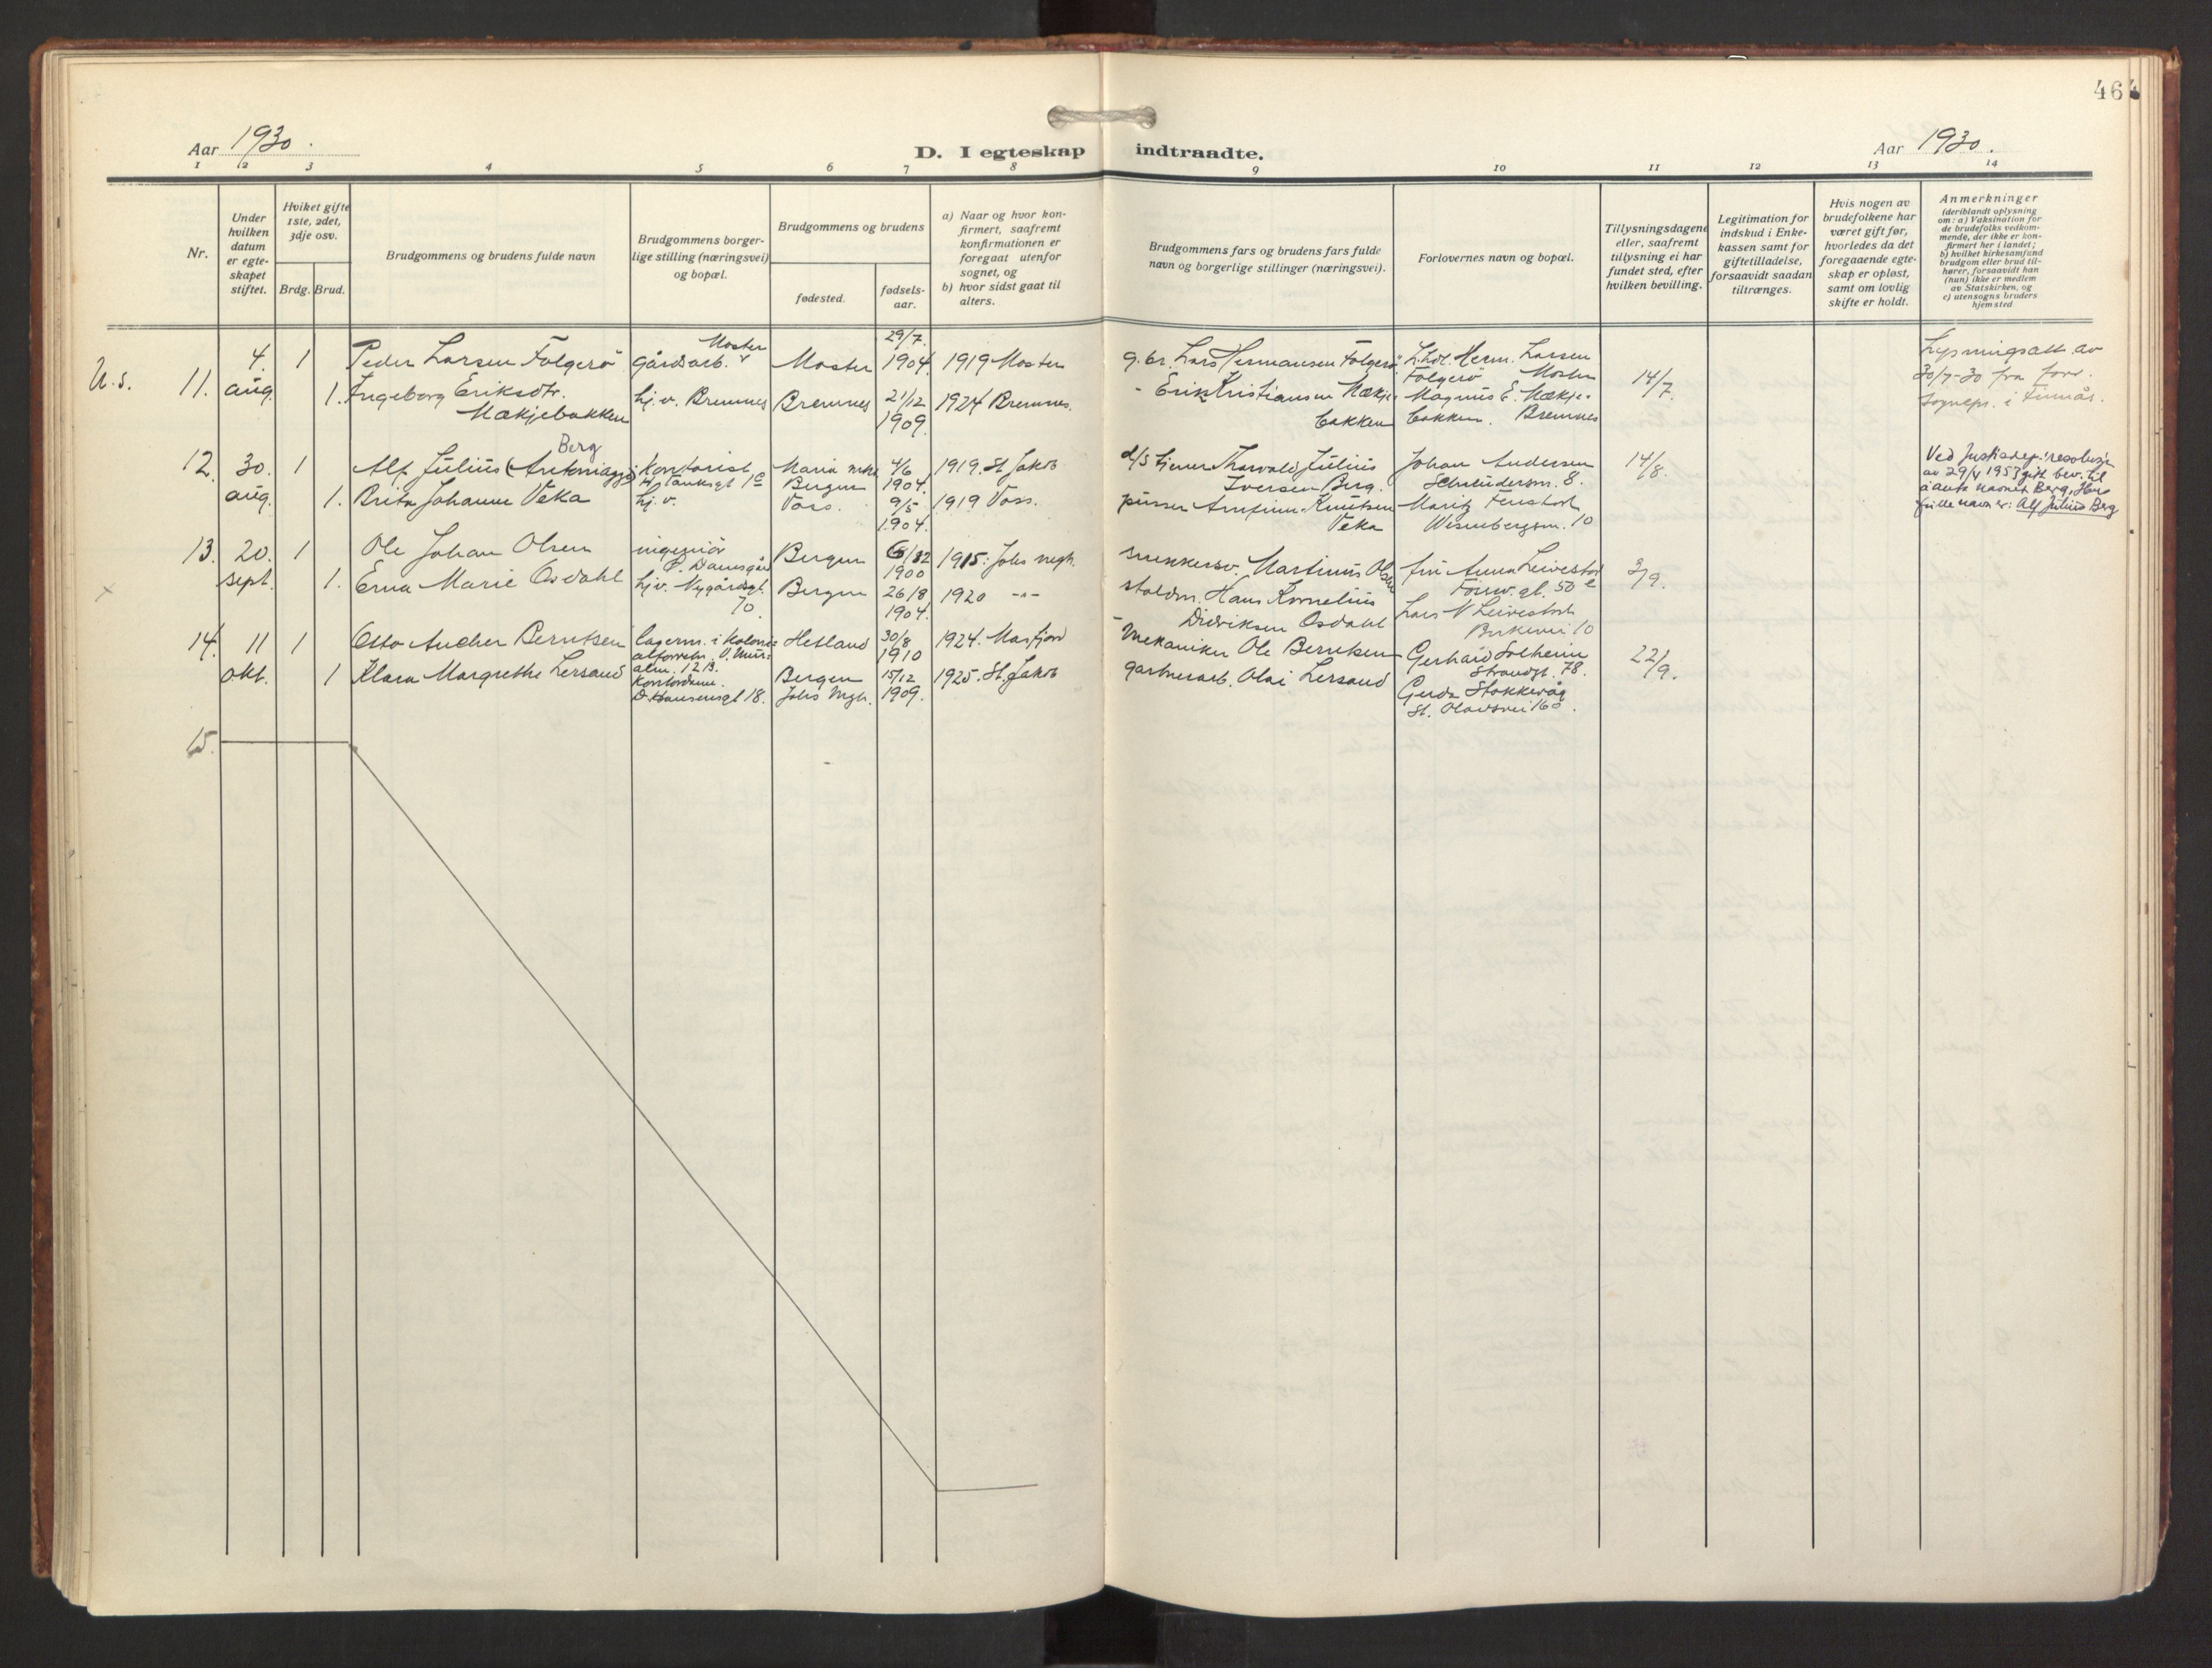 464
Aar 1930.
D. I egteskap indtraadte.
Aar 1930.
1 2 3 4 5 6 7 8 9 10 11 12 13 14
Nr.
Under hvilken datum er egteskapet stiftet.
Hviket gifte 1ste, 2det, 3dje osv.
Brdg. Brud.
Brudgommens og brudens fulde navn
Brudgommens borgerlige stilling (næringsvei) og bopæl.
Brudgommens og brudens
fødested.
fødselsaar.
a) Naar og hvor konfirmert, saafremt konfirmationen er foregaat utenfor sognet, og
b) hvor sidst gaat til alters.
Brudgommens fars og brudens fars fulde navn og borgerlige stillinger (næringsvei).
Forlovernes navn og bopæl.
Tillysningsdagene eller, saafremt tillysning ei har fundet sted, efter hvilken bevilling.
Legitimation for indskud i Enkekassen samt for giftetilladelse, forsaavidt saadan tiltrænges.
Hvis nogen av brudefolkene har været gift før, hvorledes da det foregaaende egteskap er opløst, samt om lovlig skifte er holdt.
Anmerkninger
(deriblandt oplysning om: a) Vaksination for de brudefolks vedkommende, der ikke er konfirmert her i landet; b) hvilket kirkesamfund brudgom eller brud tilhører, forsaavidt han (hun) ikke er medlem av Statskirken, og c) utensogns bruders hjemsted
U. s. 11. 4. aug. 1 Peder Larsen Folgerö gårdsarb. Moster Moster 29/7 1904. 1919 Moster g.br. Lars Hermansen Folgerö Herm. Larsen Folgerö Moster 14/7. Lysningsatt. av 30/7-30 fra
sognepr. i Finnås.
1. Ingeborg Eriksdtr. Mækjebakken hj. v. Bremnes Bremnes 21/12 1909. 1924 Bremnes. - Erik Kristiansen Mækjebakken Magnus E. Mækjebakken. Bremnes
12. 30. aug. 1 Alf Julius Berg kontorist 4/6 1904. 1919. St. Jakob Thorvald Julius Iversen Berg. Johan Andersen 8. 14/8.
Bergen
Ved Justisdep. resolusjon av 29/4 1953 gitt bev. til å anta navnet Berg. Hans fulle navn er: Alf Julius Berg
1. Brita Johanne Veka hj. v. Voss. 9/5 1904. 1919 Voss. Arnfinn Knutsen Veka Wesenbergsm. 10
13. 20. sept. 1 Ole Johan Olsen ingeniör Damsgård Bergen 1900 1915: Johs megh. snekkersv. Martinus Olsen fru Anna 3/9.
1. Erna Marie Osdahl hj. v. Nygårdsgt. 70. Bergen 26/8 1904. 1920 -"- staldm. Hans Kornelius Didriksen Osdahl Lars
Birkevei 10
14. 11 okt. 1 Otto Ancher Berntsen lagerm. i Hetland 30/8 1910 1924. Masfjord Mekaniker Ole Berntsen Gerhard Solheim Strandgt. 78. 22/9.
1 Klara Margrethe Lersand kontordame. D. Hansensgt 18. Bergen Johs Mgh. 15/12 1909. 1925. St. Jakob gartnerarb. Olai Lersand Gerda Stokkevåg St. Olavsvei 16
15.